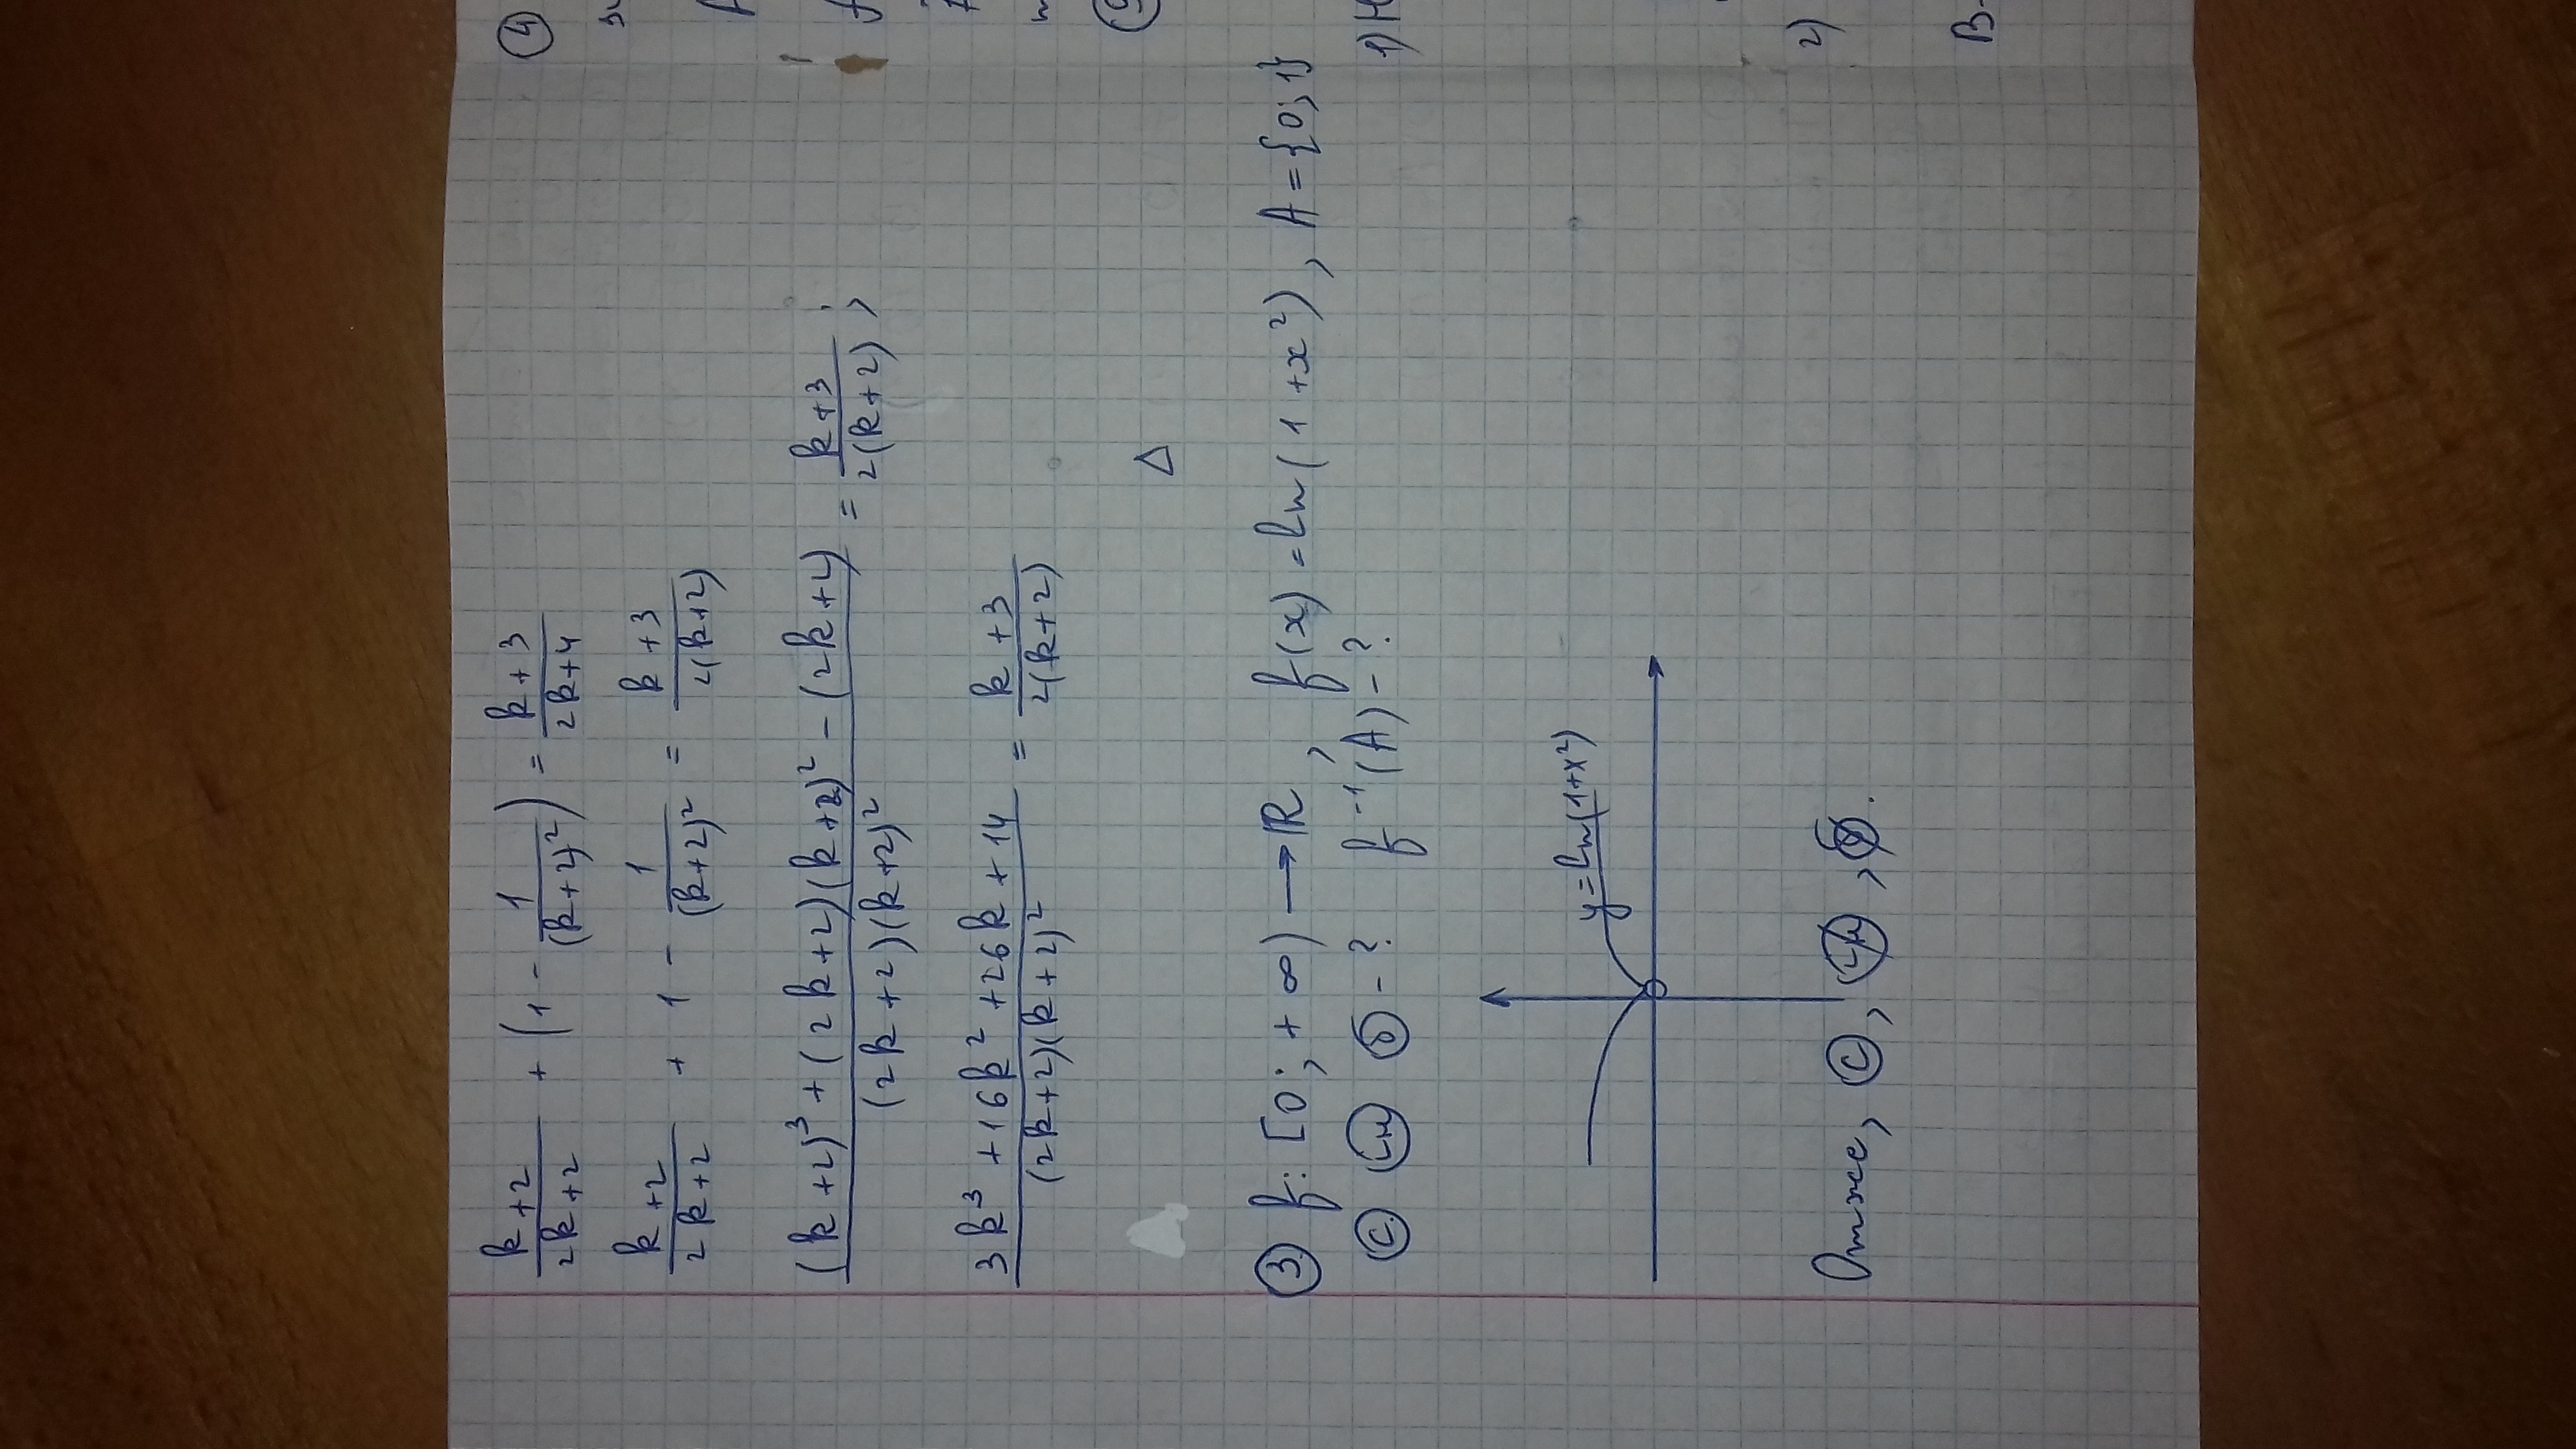 k+2/2k+2 + (1 - 1/(k+2)²) = k+3/2k+4
k+2/2k+2 + 1 - 1/(k+2)² = k+3/2(k+2)
(k+2)³+(2k+2)(k+2)²-(2k+2)/(2k+2)(k+2)² = k+3/2(k+2);
3k³+16k²+26k+14/(2k+2)(k+2)² = k+3/2(k+2)
△
③ f: [0; +∞) → ℝ, f(x) = ln(1+x²), A = {0; 1}
С ін б - ? f⁻¹(A) - ?
y = ln(1+x²)
Отже, С, ін,
④
1) Н
2)
В-